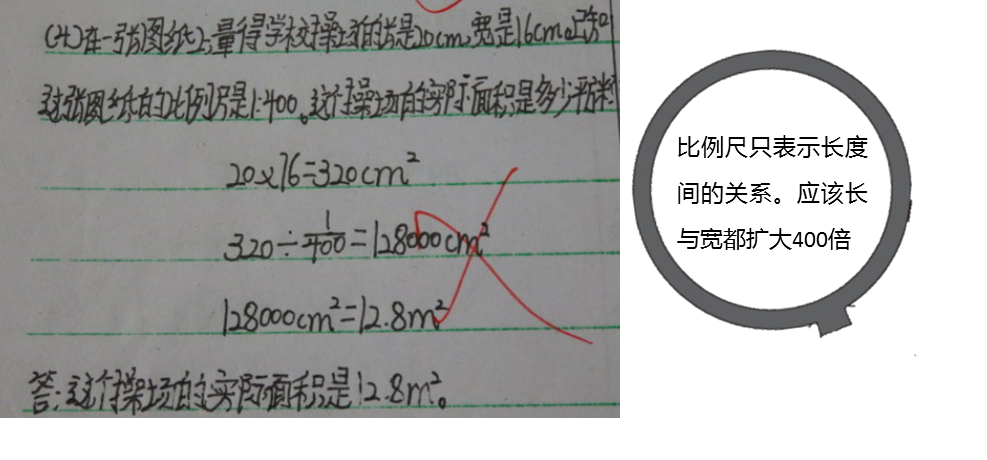 在一张图纸上,量得学校操场的长是20cm,宽是16cm。已知
这张图纸的比例尺是1:400。这个操场的实际面积是多少平方米
20×16=320cm²
320÷1/400=128000cm²
128000cm²=12.8m²
答:这个操场的实际面积是12.8m²。
比例尺只表示长度
间的关系。应该长
与宽都扩大400倍